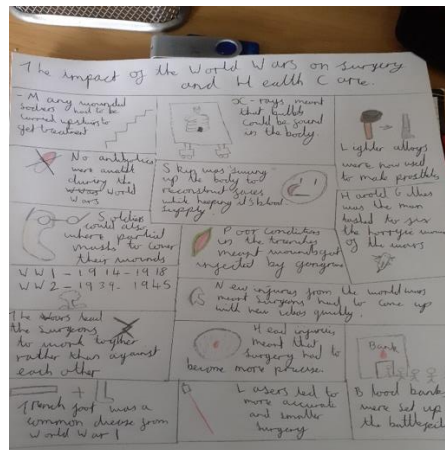 The impact of the World Wars on Surgery
and Health Care.
- Many wounded
soliers had to be
carried upstairs to
get treatment
X-rays meant
that bullets
could be found
in the body.
Lighter alloys
were now used
to make prosthetics
No antibiotics
were availt
during the
World
Wars
Skin was swung
up the body to
reconstruct faces
while keeping its blood
supply.
Harold Gillies
was the man
tasked to fix
the horrific
of the wars
Soldiers
could also
where a partial
masks to cover
their wounds
WW1 - 1914-1918
WW2 - 1939-1945
Poor conditions
in the trenches
meant wounds got
infected by gangrene
New injuries from the world wars
meant surgeons had to come up
with new ideas quickly.
The Wars lead
the Surgeons
to work togther
rather than against
each other
Head injuries
meant that
surgery had to
become more precise.
Bank
Blood banks
were set up
the battlefield
Trench foot was a
common disease from
World War 1
Lasers led to
more accurate
and smaller
surgery